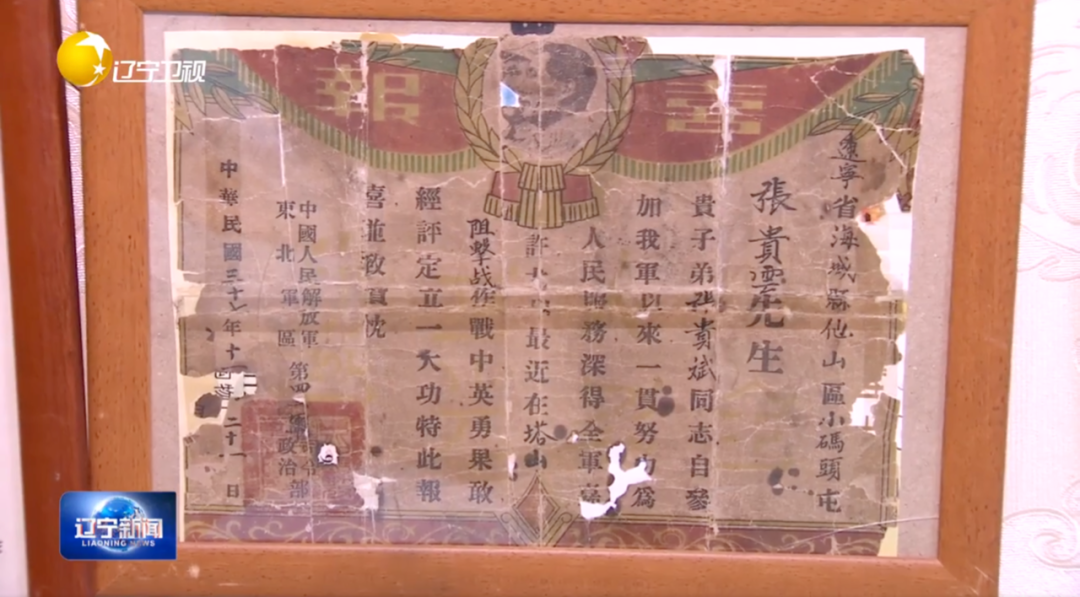 辽宁卫视
喜報
遼寧省海城縣他山區小碼頭屯
張貴 先生
貴子弟張貴斌同志自參
加我軍以來一貫努力為
人民服務深得全軍
許 最近在塔山
阻擊战作戰中英勇果敢
經評定立一大功特此報
喜並致賀忱
中國人民解放軍
東北軍區
第四 政治部
中華民國三十 年十 月二十一日
辽宁新闻
LIAONING NEWS